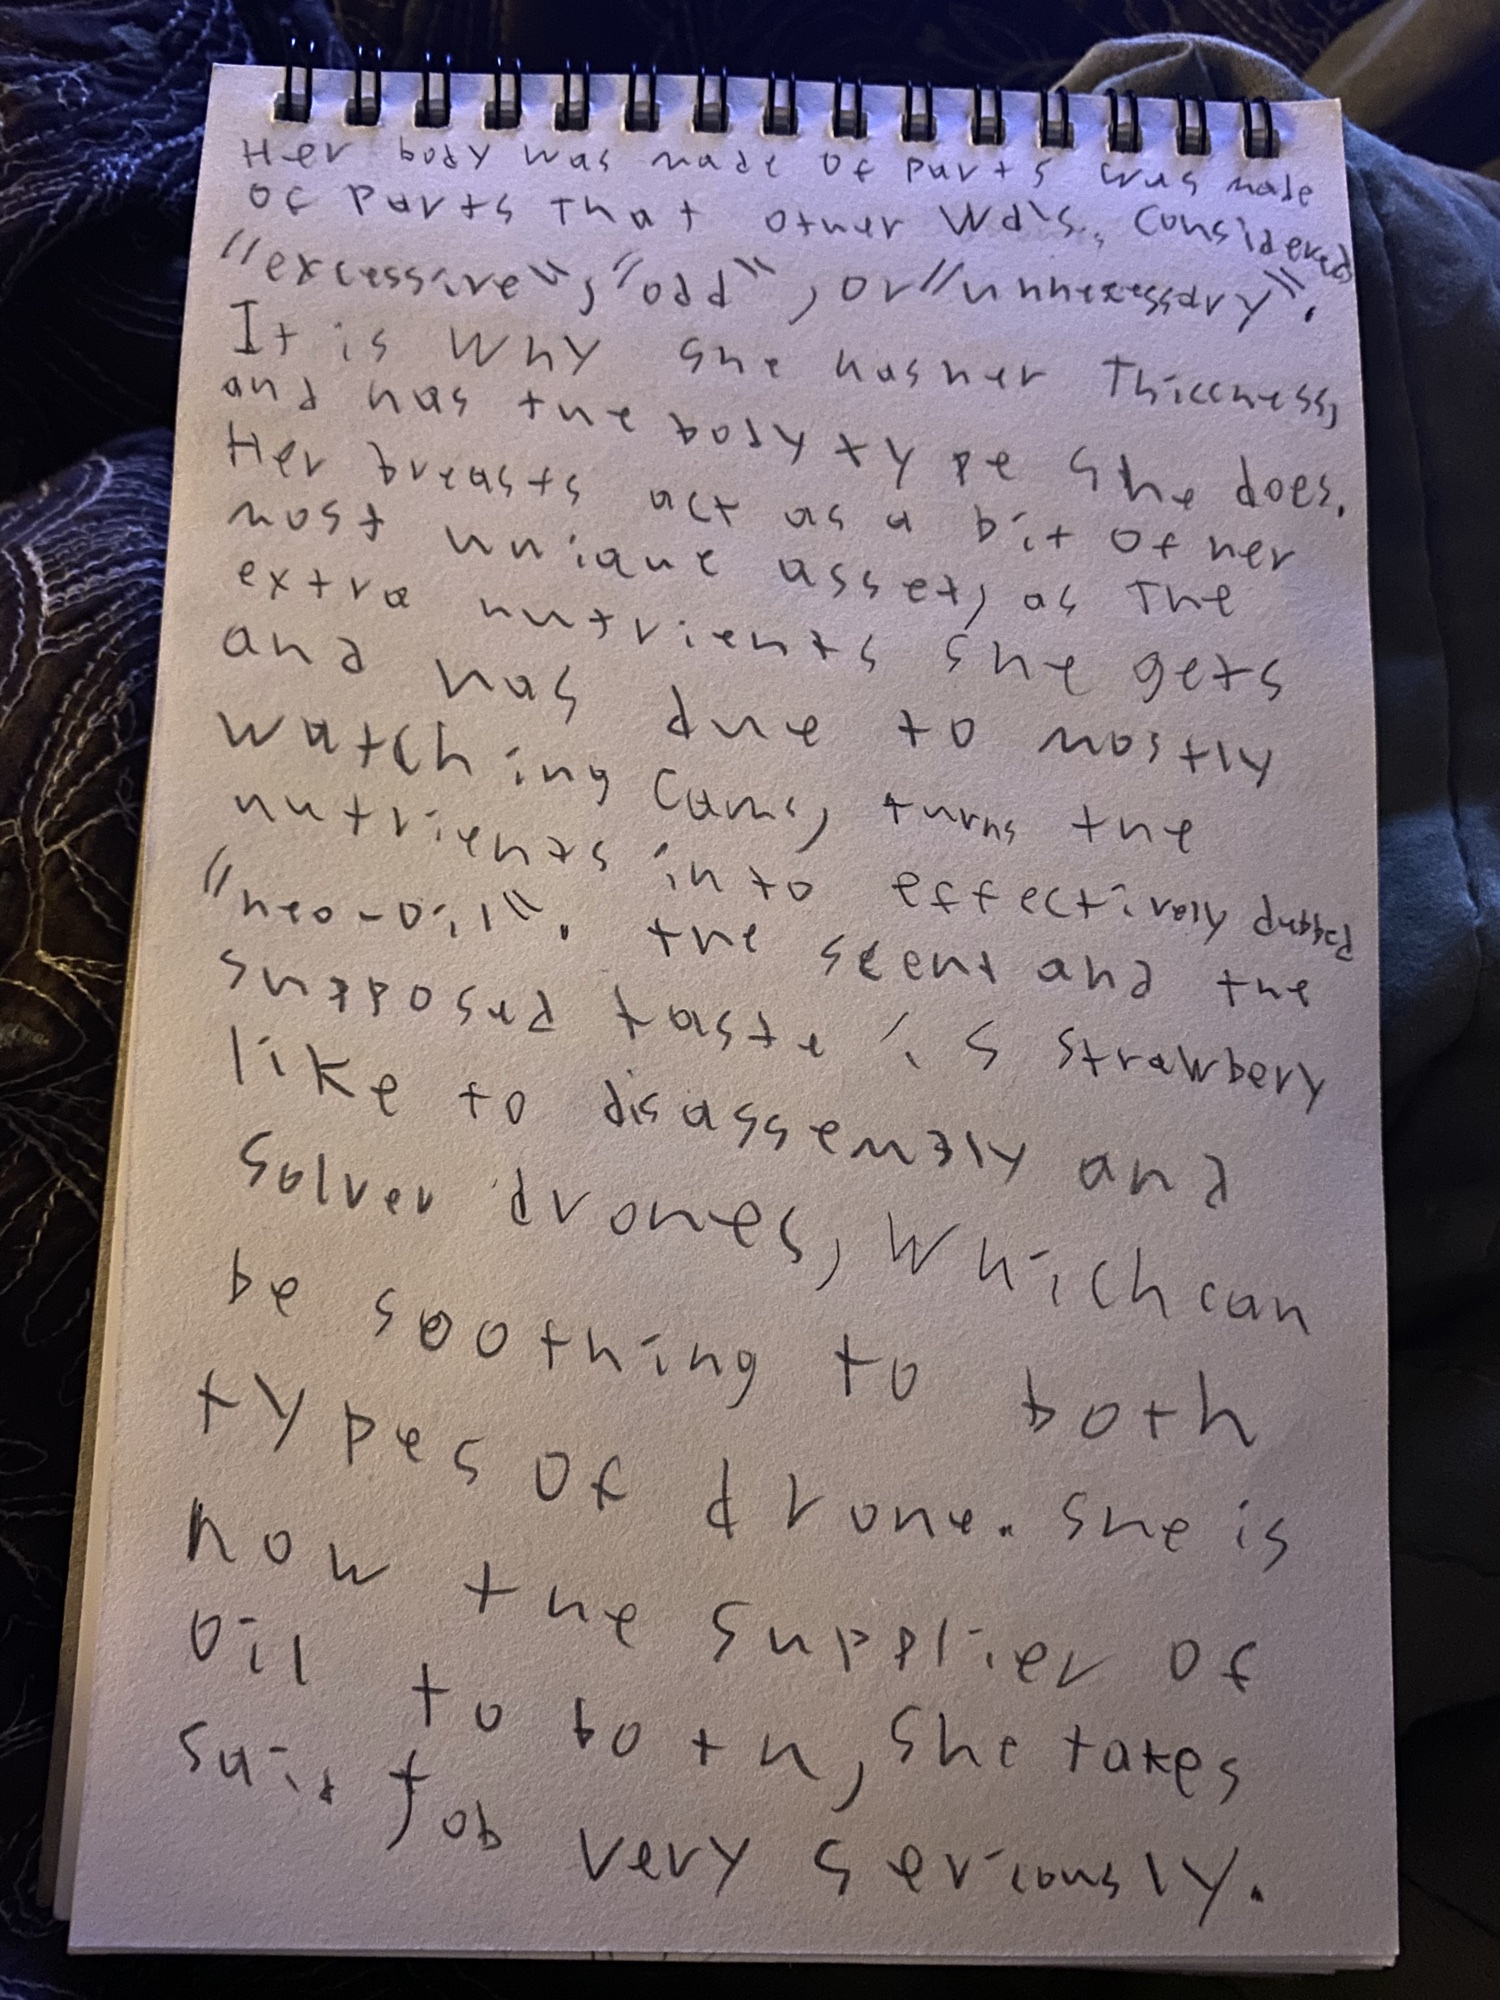 Her body was made of parts was made
of parts that other Wd's, considered
"excessive", "odd", or "unnecessary".
It is why she has her thiccness,
and has the body type she does.
Her breasts act as a bit of her
most unique asset, as the
extra nutrients she gets
and has due to mostly
watching cams, turns the
nutrients into effectively dubbed
"neo-oil". the scent and the
supposed taste is strawbery
like to disassembly and
solver drones, which can
be soothing to both
types of drone. she is
now the supplier of
oil to both, she takes
said job very seriously.